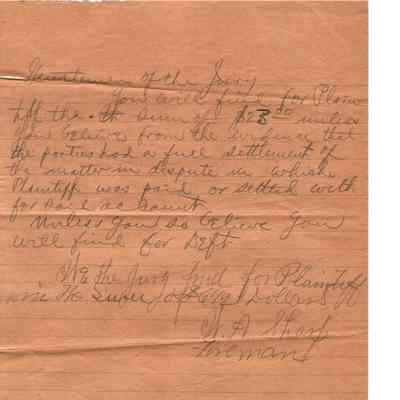 Gentlemen of the Jury
You will find for Plain
tiff the sum of $23.00 unless
you believe from the evidence that
the parties had a full settlement of
the matter in dispute in which
Plaintiff was paid or settled with
for said account.
Unless you so believe you
will find for Deft.
We the Jury find for Plaintiff
in the Dollars
W. A. Sharp
Foreman